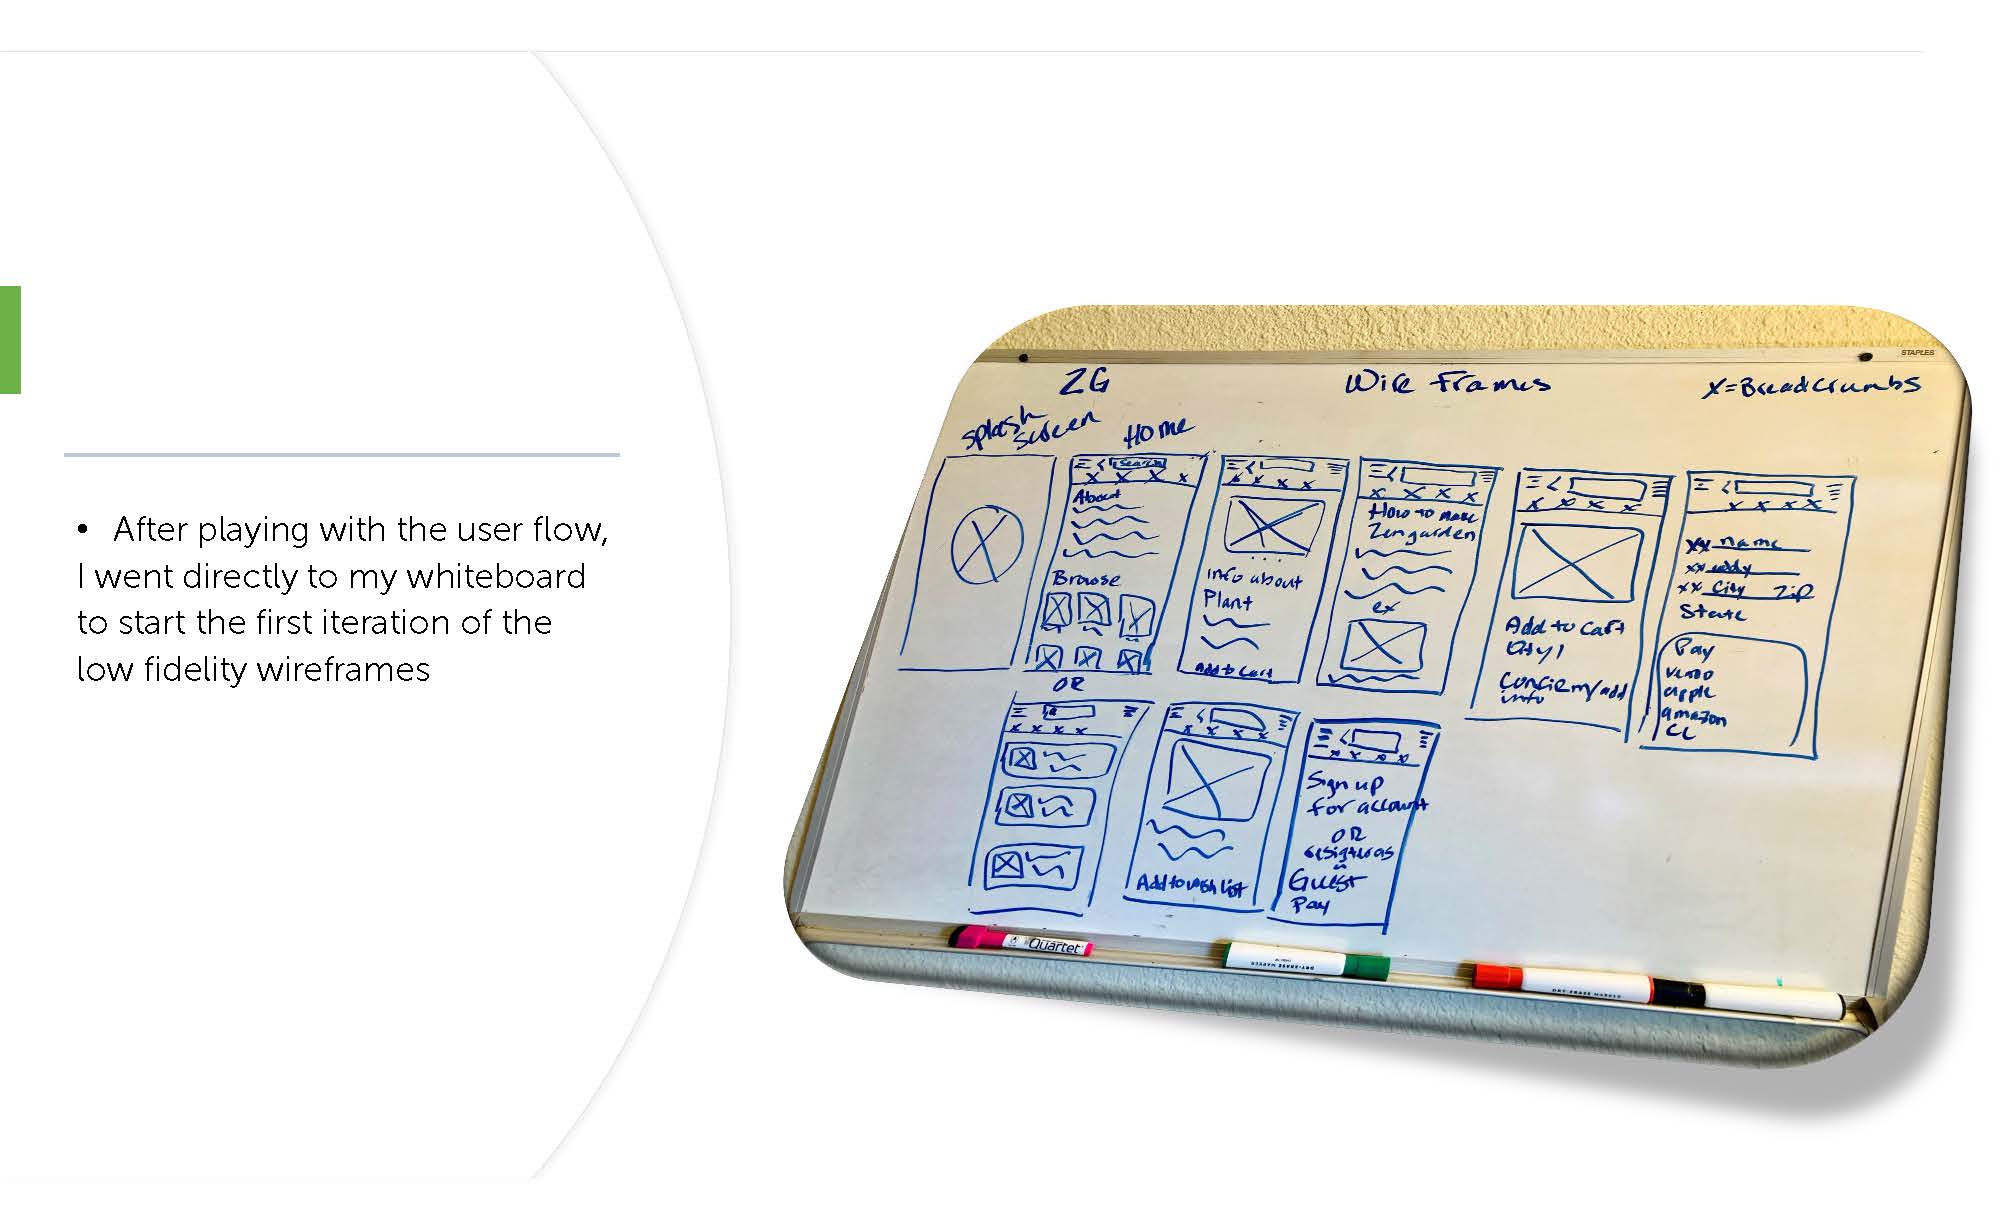 • After playing with the user flow,
I went directly to my whiteboard
to start the first iteration of the
low fidelity wireframes
STAPLES
ZG
Wire Frames
X=Breadcrumbs
Splash
screen
Home
Search
About
Browse
OR
Info about
Plant
Add to Cart
How to make
Zen garden
ex
Add to Cart
Qty 1
Confirm/add
info
xx name
xx addy
xx City Zip
State
Pay
venmo
apple
amazon
CC
Add to wish list
Sign up
for account
OR
Guest
Pay
Quartet
DRY-ERASE MARKER
DRY-ERASE MARKER